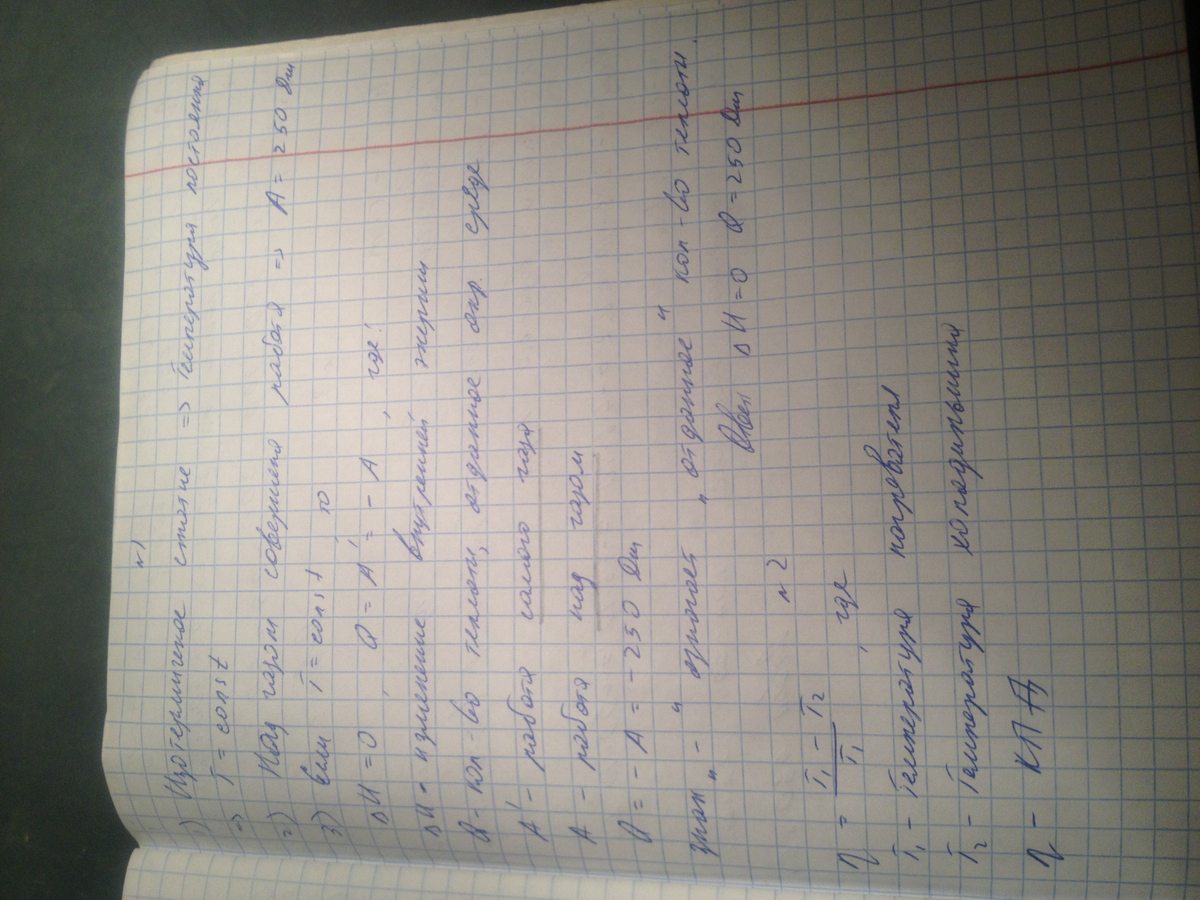 №1
1) Изотермическое сжатие => Температура постоянна
=> T = const
2) Над газом совершена работа => A = 250 Дж
3) Если T = const, то
ΔU = 0, Q = A' = - A, где:
ΔU - изменение внутренней энергии
Q - кол-во теплоты, отданное окр. среде
A' - работа самого газа
A - работа над газом
Q = - A = - 250 Дж
знак „ - " означает „ отданное " кол-во теплоты.
Ответ ΔU = 0 Q = 250 Дж
№2
η = T₁ - T₂ / T₁, где
T₁ - Температура нагревателя
T₂ - Температура холодильника
η - КПД